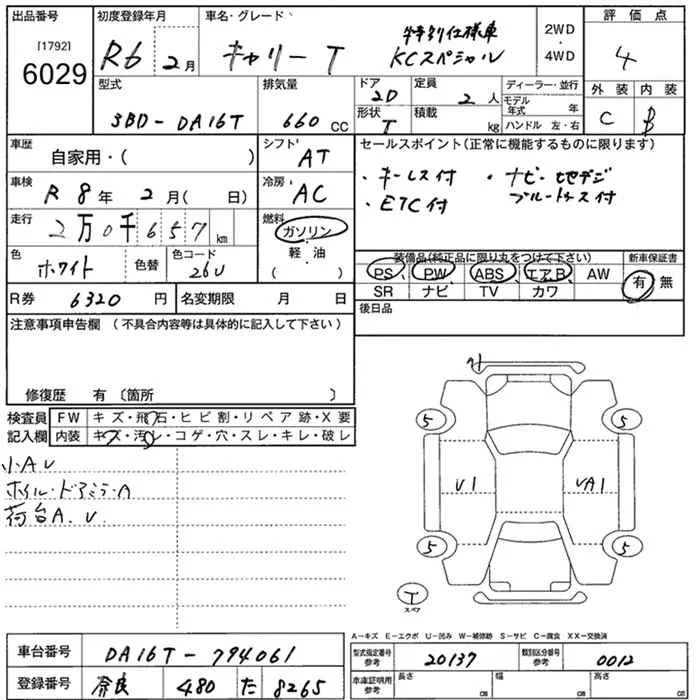 出品番号 初度登録年月 車名・グレード 評価点
[1792]
6029
R6 2月
キャリー T
特別仕様車
KCスペシャル
2WD・4WD
4
型式 排気量 ドア 定員 ディーラー・並行 外装 内装
3BD-DA16T
660 CC
2D
2人
モデル年式 年
C B
形状 積載
T kg
ハンドル 左・右
車歴 シフト セールスポイント(正常に機能するものに限ります)
自家用・( ) AT
・キーレス付 ・ナビ・地デジ
ブルートゥース付
・ETC付
車検 冷房
R 8年 2月( 日) AC
走行 燃料
2万0千657km
ガソリン・軽油・( )
色 色替 色コード
ホワイト 26U
装備品(純正品に限り丸をつけて下さい) 新車保証書
PS、PW ABS エアB AW 有・無
SR ナビ TV カワ
R券 6320円 名変期限 月 日
後日品
注意事項申告欄(不具合内容等は具体的に記入して下さい)
修復歴 有〔箇所 〕
検査員記入欄
FW キズ・飛石・ヒビ割・リペア跡・X要
内装 キズ・汚レ・コゲ・穴・スレ・キレ・破レ
小AU
ホイル・ドアミラーA
荷台A.U.
5 5
U1 UA1
5 5
T
スペア
A-キズ E-エクボ U-凹み W-補修跡 S-サビ C-腐食 XX-交換済
車台番号 DA16T-794061
型式指定番号参考 20137 類別区分番号参考 0012
登録番号 奈良 480 た 8265
車庫証明用参考 長さ CB 幅 CB 高さ CB